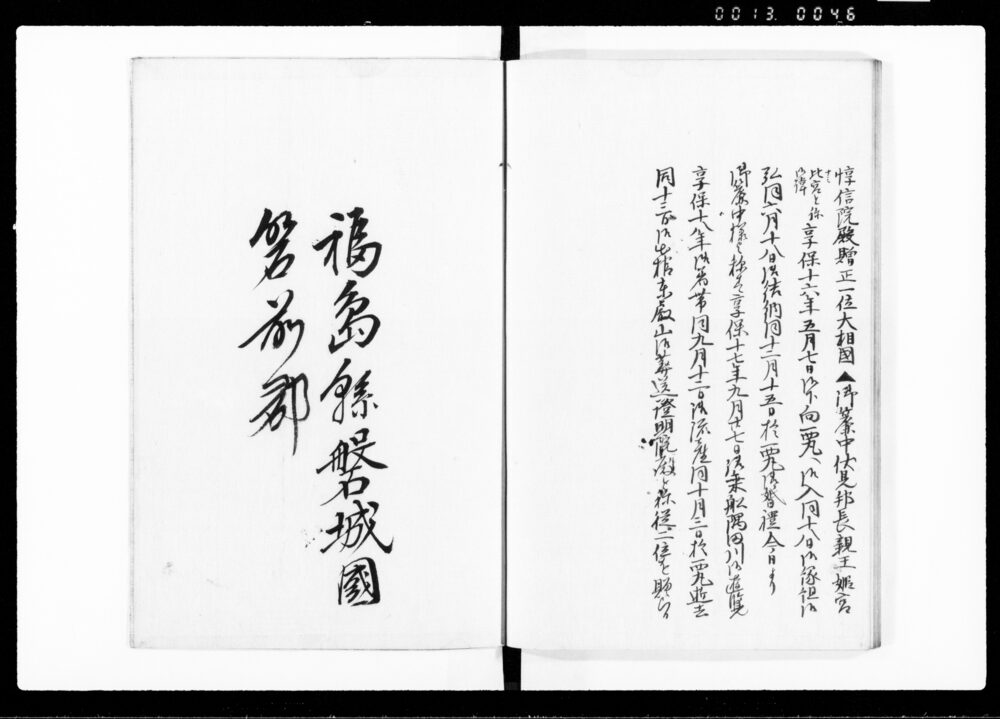 0013 0046
惇信院殿贈正一位大相國▲御簾中伏見邦長親王姫宮
比宮と称 享保十六年五月七日御下向西丸、御入同十八日御縁組御
弘同六月十八日御結納同十二月十五日於西丸御婚禮今日より
御簾中様と称す享保十七年九月廿七日御乗船隅田川御遊覧
享保十八年御着帯同九月十一日御流産同十月三日於西丸逝去
同十三日御出棺東叡山御葬送證明院殿と称従二位を贈らる
福島縣磐城國
磐前郡